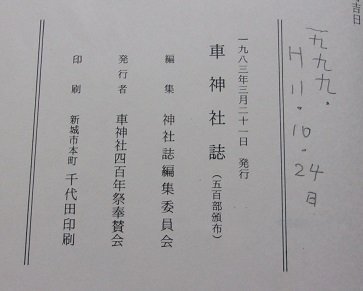 吉日
一九九九.
H 11.10.24日
一九八三年三月二十一日 発行
車神社誌（五百部頒布）
編集 神社誌編集委員会
発行者 車神社四百年祭奉賛会
印刷 新城市本町 千代田印刷